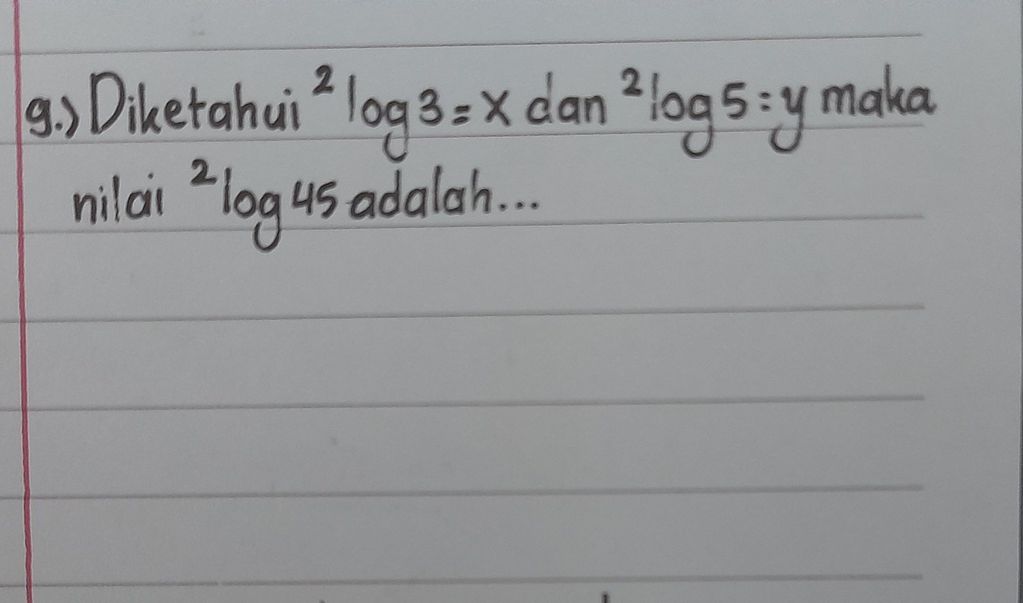 9.) Diketahui ²log 3 = x dan ²log 5 = y maka
nilai ²log 45 adalah...